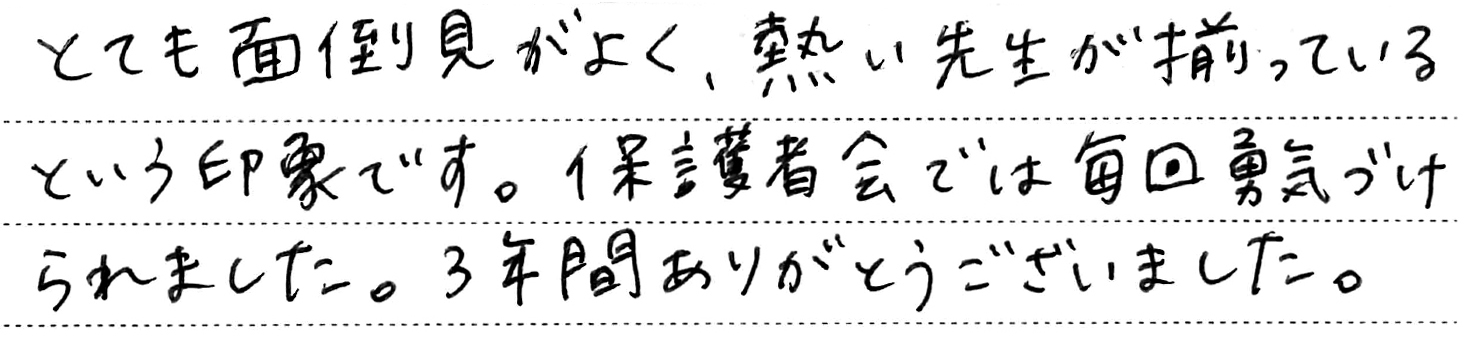 とても面倒見がよく、熱い先生が揃っている
という印象です。保護者会では毎回勇気づけ
られました。3年間ありがとうございました。